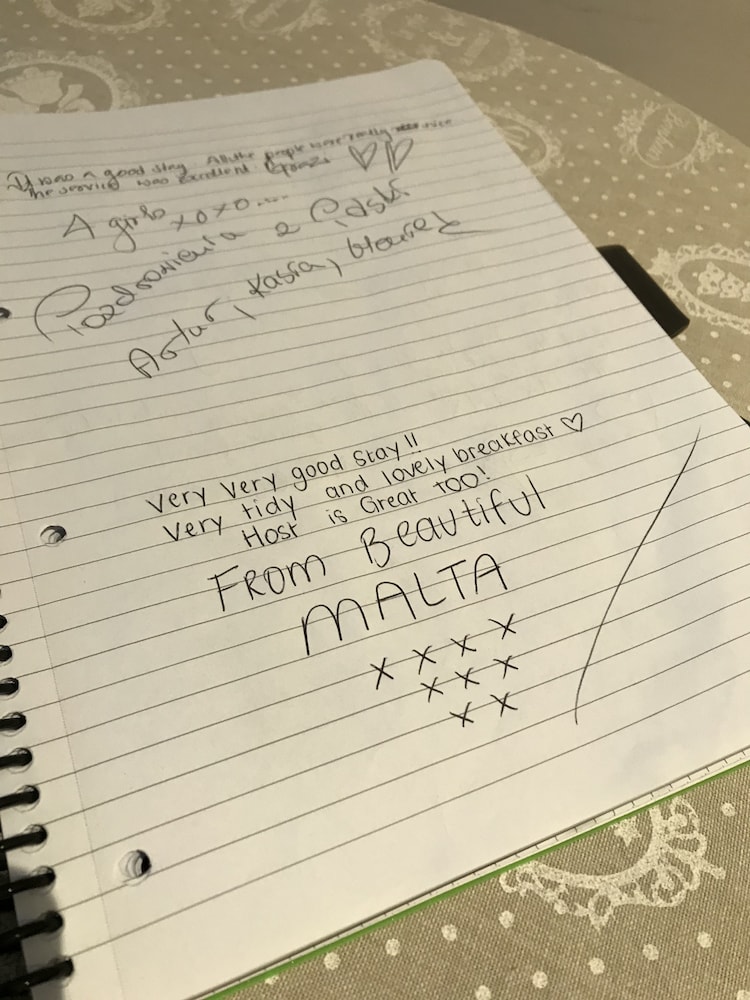 It was a good stay. All the people were really nice
the service was Excellent.
4 girls xoxo....
Pozdrowienia z Polski
Artur, Kasia,
Very Very good Stay!!
Very tidy and lovely breakfast ♡
Host is Great too!
FROM Beautiful
MALTA
x x x x
x x x
x x